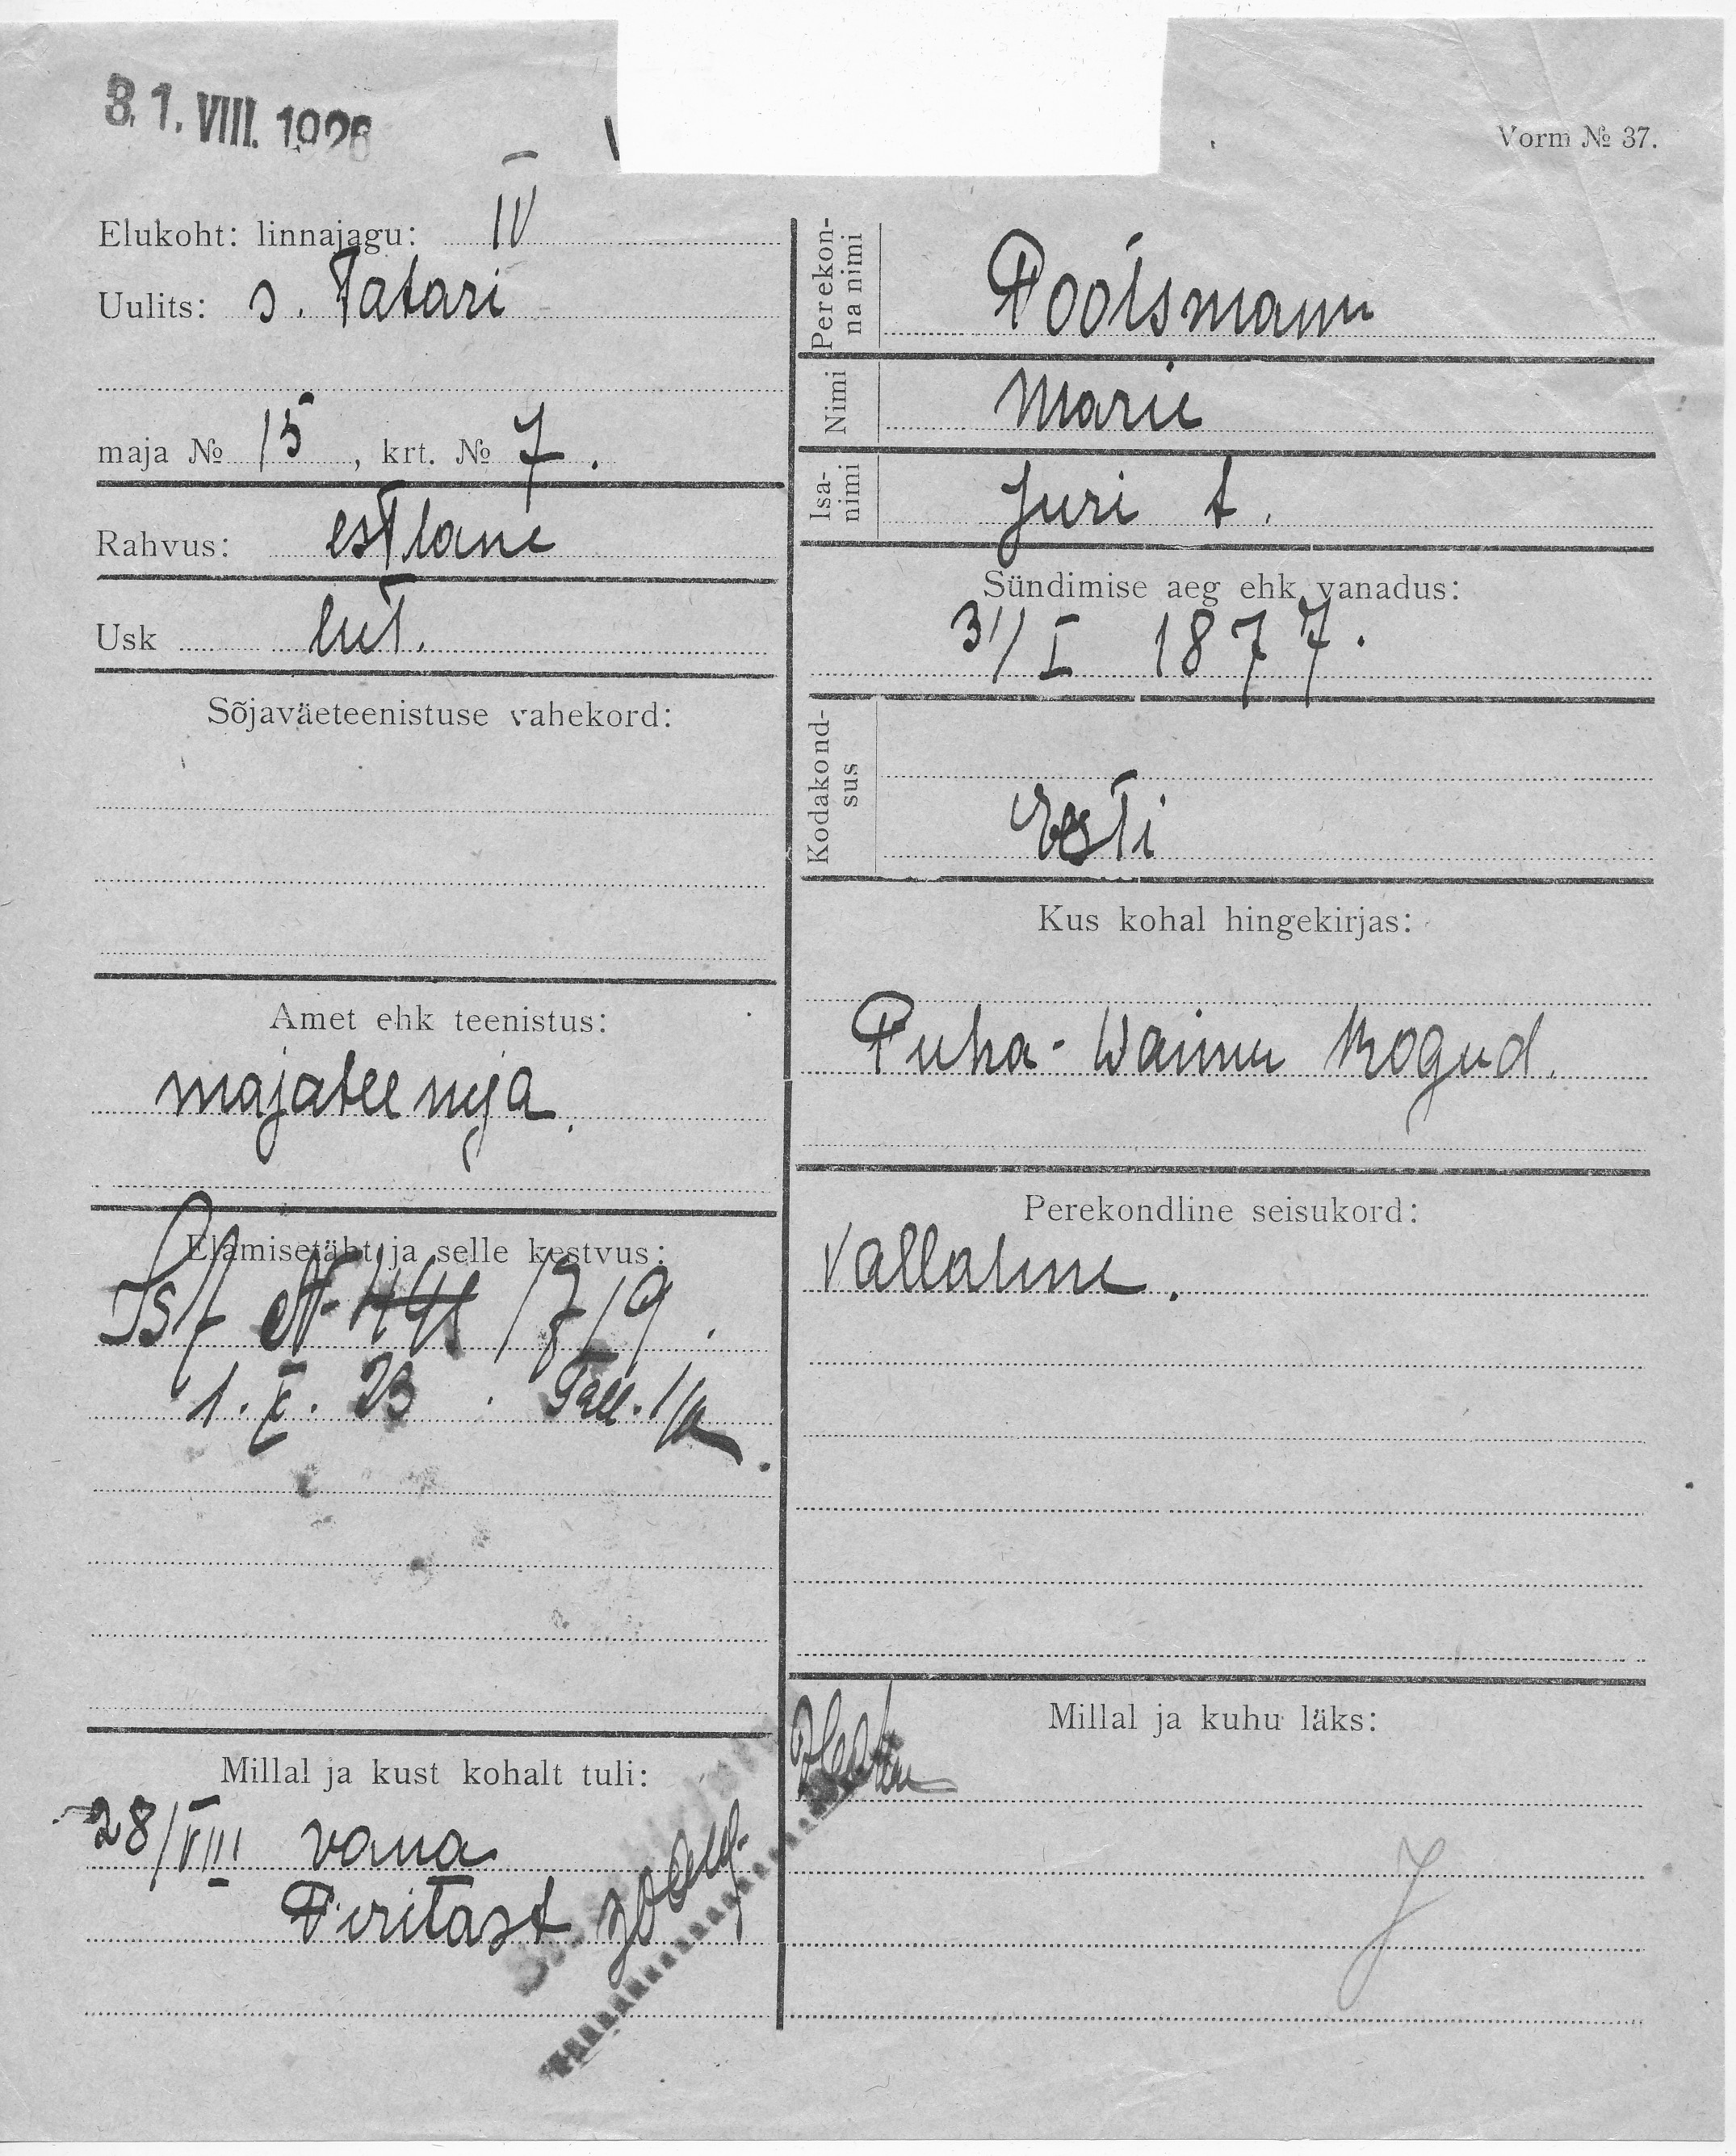 31. VIII. 1926
Vorm № 37.
Elukoht: linnajagu: IV
Uulits: s. Tatari
maja № 15, krt. № 7.
Rahvus: estlane
Usk lut.
Sõjaväeteenistuse vahekord:
Amet ehk teenistus:
majateenija.
Elamisetäht ja selle kestvus:
1.X.23. Tall.
Millal ja kust kohalt tuli:
28/VIII vana
Piritast
Perekonna nimi
Pootsmann
Nimi Marie
Isanimi Juri t.
Sündimise aeg ehk vanadus:
31/I 1877.
Kodakondsus
Eesti
Kus kohal hingekirjas:
Puha-Waimu kogud.
Perekondline seisukord:
Vallaline.
Millal ja kuhu läks: